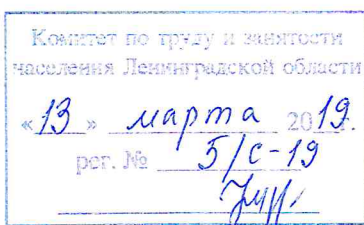 Комитет по труду и занятости
населения Ленинградской области
«13» марта 2019.
рег. № 5/с-19